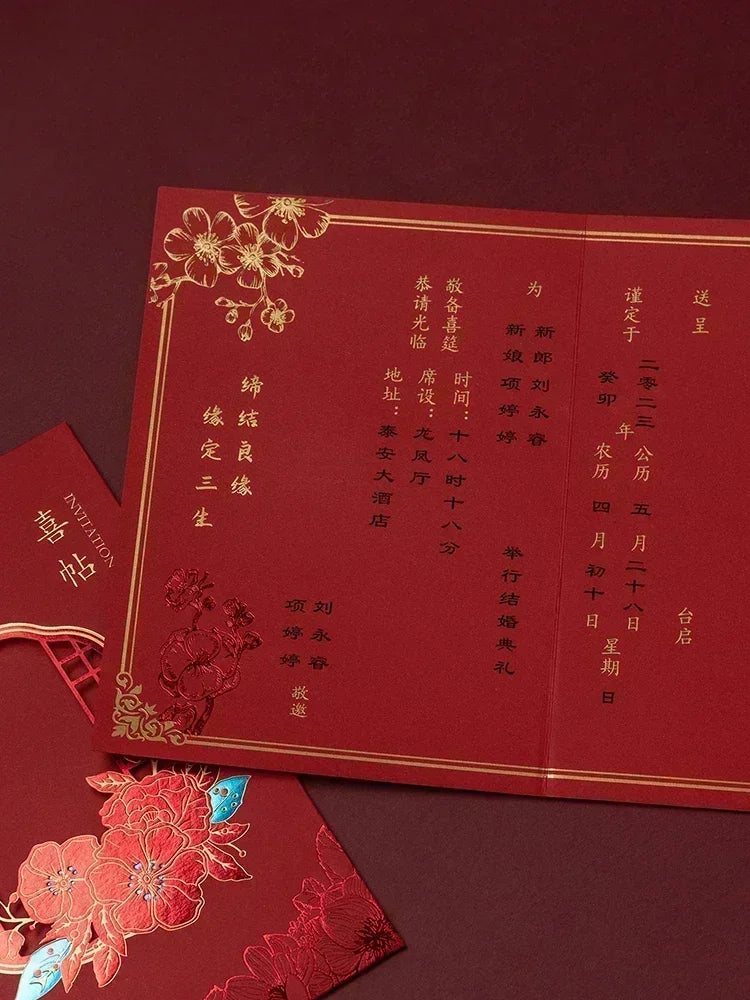 送呈
台启
谨定于
二零二三年
公历五月二十八日
癸卯
农历四月初十日
星期日
为
新郎刘永睿
新娘项婷婷
举行结婚典礼
敬备喜筵
恭请光临
时间：十八时十八分
席设：龙凤厅
地址：泰安大酒店
刘永睿
项婷婷
敬邀
缔结良缘
缘定三生
喜帖
INVITATION